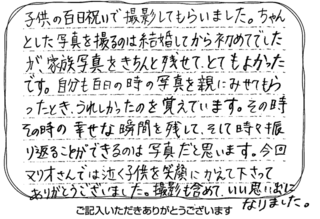 子供の百日祝いで撮影してもらいました。ちゃん
とした写真を撮るのは結婚してから初めてでした
が家族写真をきちんと残せて、とてもよかった
です。自分も百日の時の写真を親にみせてもら
ったとき、うれしかったのを覚えています。その時
その時の幸せな瞬間を残して、そして時々振
り返ることができるのは写真だと思います。今回
マリオさんでは泣く子供を笑顔にかえて下さって
ありがとうございました。撮影も含めて、いい思い出に
なりました。
ご記入いただきありがとうございます